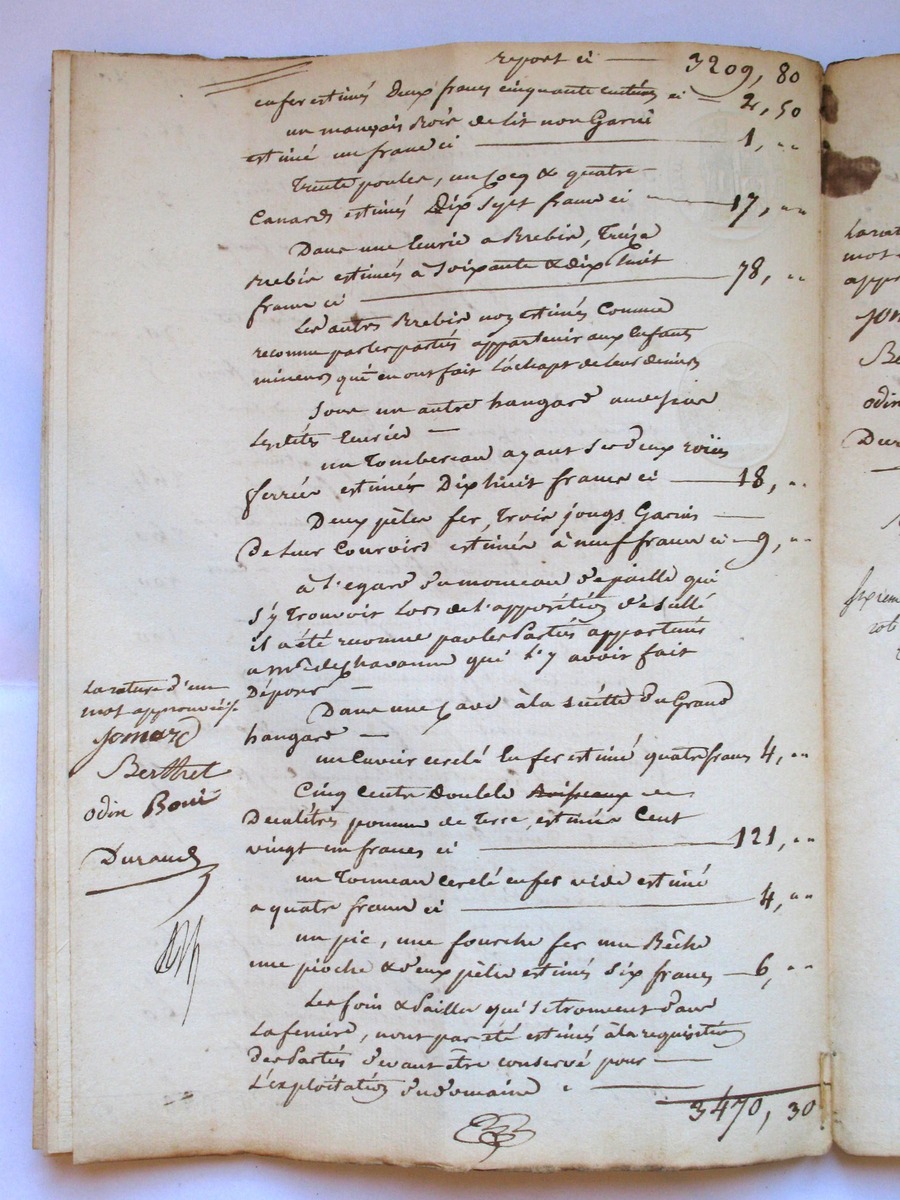 report ci — 3209, 80
en fer estimés deux francs cinquante centimes ci — 2, 50
un mauvais bois de lit non Garni
estimé un franc ci — 1, "
Trente poules, un coq & quatre
Canards estimés Dix sept francs ci — 17, "
Dans une Ecurie a Brebis, Treize
Brebis estimés à Soixante & dix huit
francs ci — 78, "
Les autres Brebis non estimés Comme
reconnu par les partiés appartenir aux Enfants
mineurs qui en ont fait L'achapt de leurs deniers
Sous un autre hangard
Lesdites Ecuries —
un Tombereau ayant Ses deux roües
ferrées estimés Dix huit francs ci — 18, "
Deux pèles fer, Trois jougs Garnis —
De leur Courroirs estimés à neuf francs ci — 9, "
à L'egard d'un monceau d'epaille qui
s'y Trouvoit Lors de l'apposition de Scellé
il a été reconnu par les Partiés appartenir
a mr. deschavanne qui L'y avoit fait
Déposer —
Dans une Cave à la suitte du Grand
hangard —
un Cuvier cerclé En fer estimé quatre francs 4, "
Cinq Cents Double Boisseaux
Decalitres pomme de Terre, estimées Cent
vingt un francs ci — 121, "
un Tonneau cerclé en fer vide estimé
a quatre francs ci — 4, "
un pic, une fourche fer une Bêche
une pioche & deux pèles estimés Six francs — 6, "
Les foin & Pailles qui se trouvent dans
La feniere, n'ont pas été estimés à la requisition
Des Partiés devant etre conservé pour —
L'exploitation du domaine —
3470, 30
La rature d'un
mot approuvée
Jomard
Berthet
odin Boni
Durand
La rat
mot
app
Jom
Be
odin
Dur